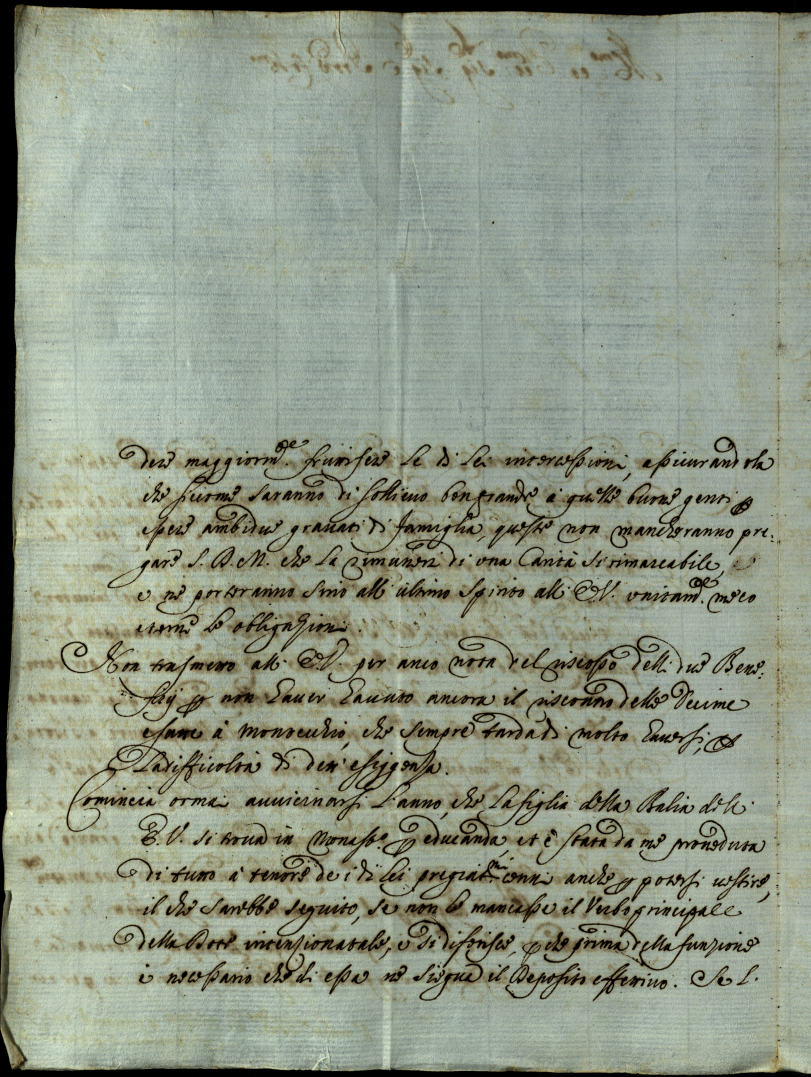 dere maggiorm.te fruttifere le di Lei intercessioni, assicurandola
che siccome saranno di sollievo ben grande à quelle buone genti p
essere ambidue gravati di famiglia, queste non mancheranno pre:
gare S. D. M. che La rimuneri di una Carità si rimarcabile,
e ne porteranno sino all' ultimo spirito all' E.V. unitam.te meco
eterne le obligazioni.
Non trasmetto all' E.V. per anco nota del riscosso delli due Bene:
fizj p non haver havuto ancora il riscontro delle Decime
esatte à Montecchio, che sempre tarda di molto haversi, p
La difficoltà di dett' esigenza.
Comincia ormai avvicinarsi L'anno, che La figlia della Balia dell'
E.V. si trova in Monast.o p educanda, et è stata da me proveduta
di tutto à tenore de i di Lei pregiat.mi cenni anche p potersi vestire,
il che sarebbe seguito, se non le mancasse il Verbo principale
della Dote intenzionatale, e si diferisce, p che prima della funzione
è necessario che di essa ne siegua il Deposito effettivo. Se l'